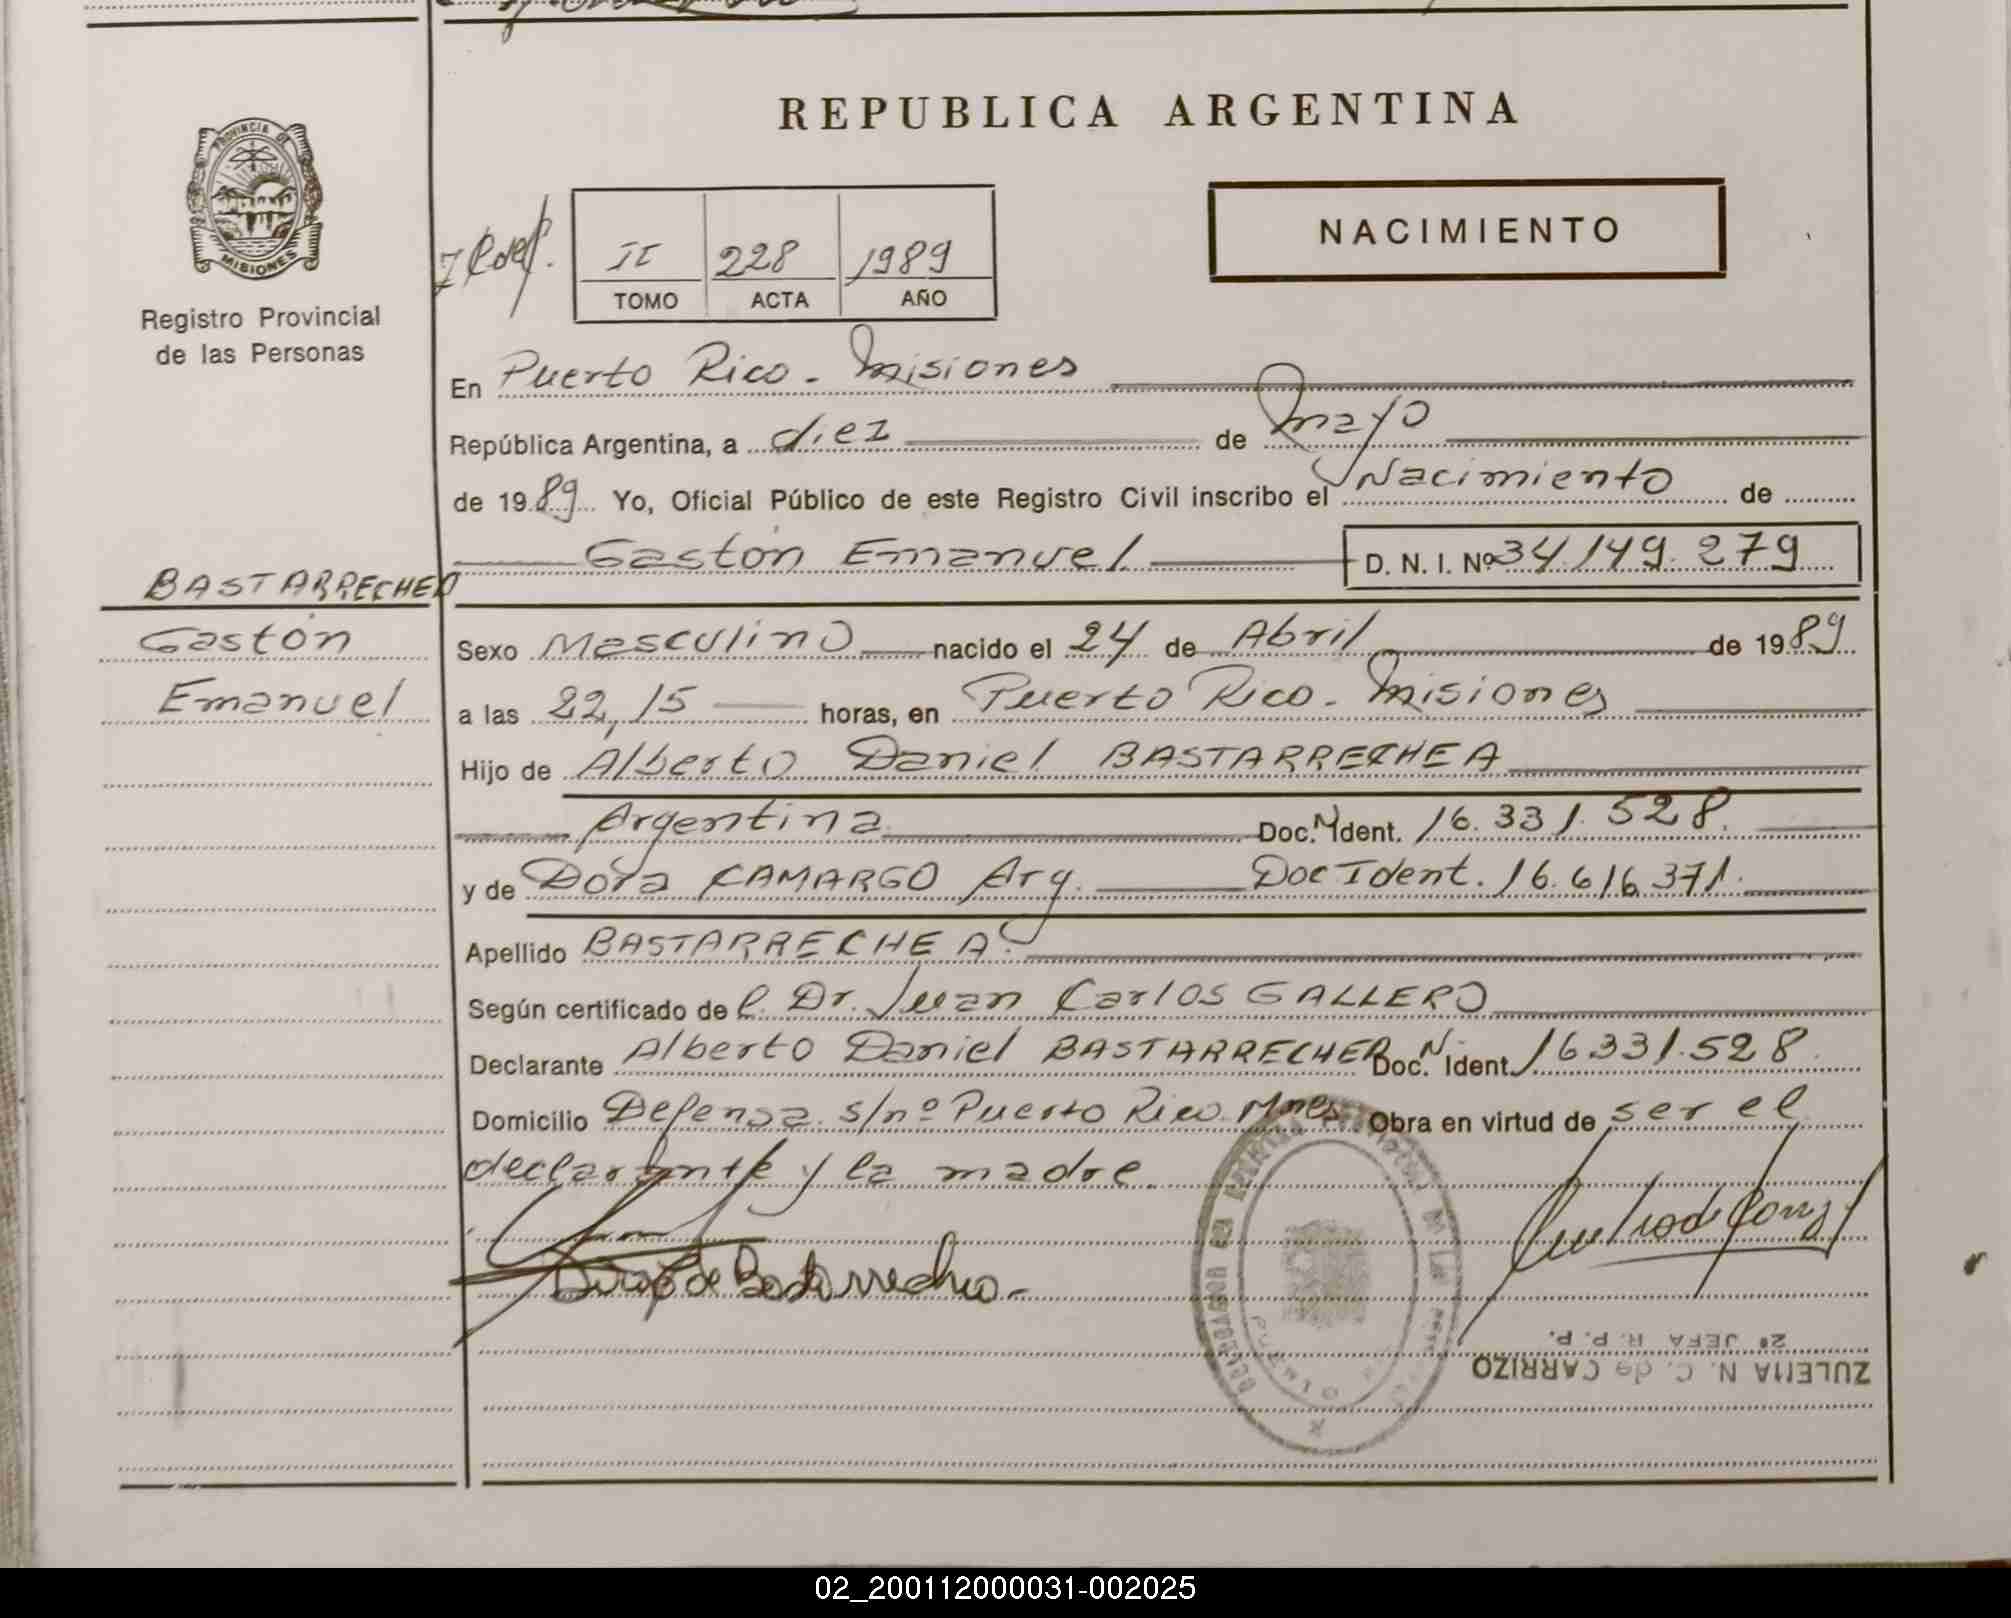 REPUBLICA ARGENTINA
PROVINCIA DE
MISIONES
Registro Provincial
de las Personas
II 228 1989
TOMO ACTA AÑO
NACIMIENTO
En Puerto Rico - Misiones
República Argentina, a diez de mayo
de 1989 Yo, Oficial Público de este Registro Civil inscribo el Nacimiento de
Gastón Emanuel D. N. I. Nº 34.149.279
BASTARRECHEA
Gastón
Emanuel
Sexo Masculino nacido el 24 de Abril de 1989
a las 22,15 horas, en Puerto Rico - Misiones
Hijo de Alberto Daniel BASTARRECHEA
Argentina Doc. N Ident. 16.331.528.
y de Dora CAMARGO Arg. Doc Ident. 16.616.371.
Apellido BASTARRECHEA.
Según certificado de l. Dr. Juan Carlos GALLERO
Declarante Alberto Daniel BASTARRECHEA Doc. N Ident. 16331.528.
Domicilio Defensa s/nº Puerto Rico Mnes. Obra en virtud de ser el
declarante y la madre.
2ª JEFA R. P. P.
ZULEMA N. C. de CARRIZO
02_200112000031-002025